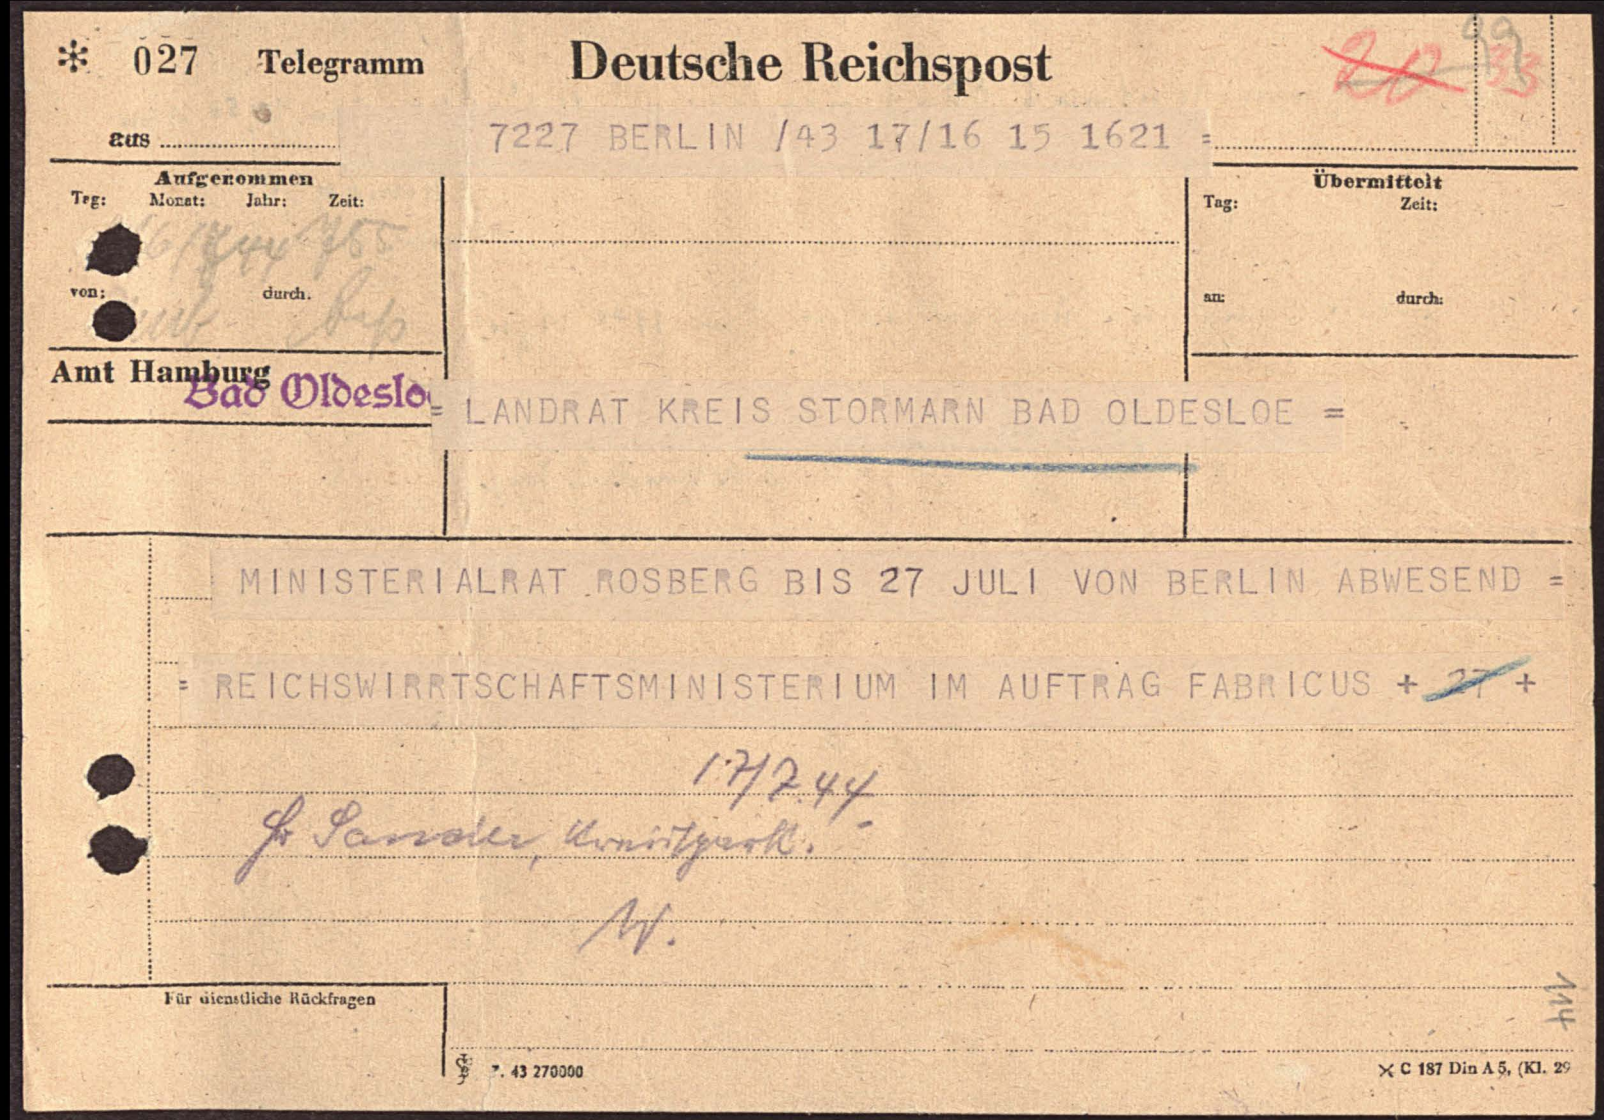 * 027 Telegramm Deutsche Reichspost 20 99 33
aus 7227 BERLIN /43 17/16 15 1621 =
Aufgenommen
Tag: Monat: Jahr: Zeit:
16/7 44 755
von: durch.
Übermittelt
Tag: Zeit:
an: durch:
Amt Hamburg
Bad Oldesloe
= LANDRAT KREIS STORMARN BAD OLDESLOE =
MINISTERIALRAT ROSBERG BIS 27 JULI VON BERLIN ABWESEND =
= REICHSWIRRTSCHAFTSMINISTERIUM IM AUFTRAG FABRICUS + 27 +
17/7.44.
Hr Sander,
W.
114
Für dienstliche Rückfragen
7. 43 270000
C 187 Din A 5, (Kl. 29